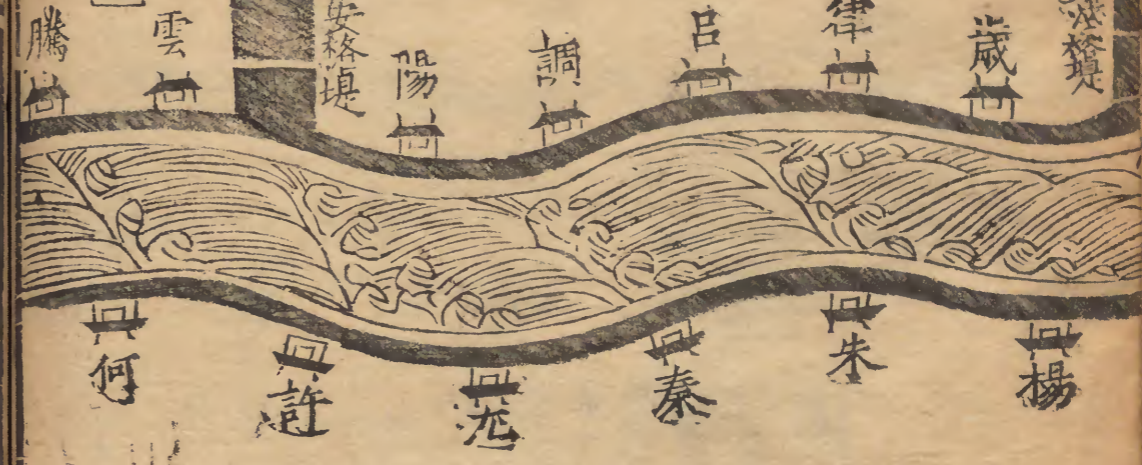 歲
律
呂
調
陽
安格堤
雲
騰
楊
朱
秦
尤
許
何